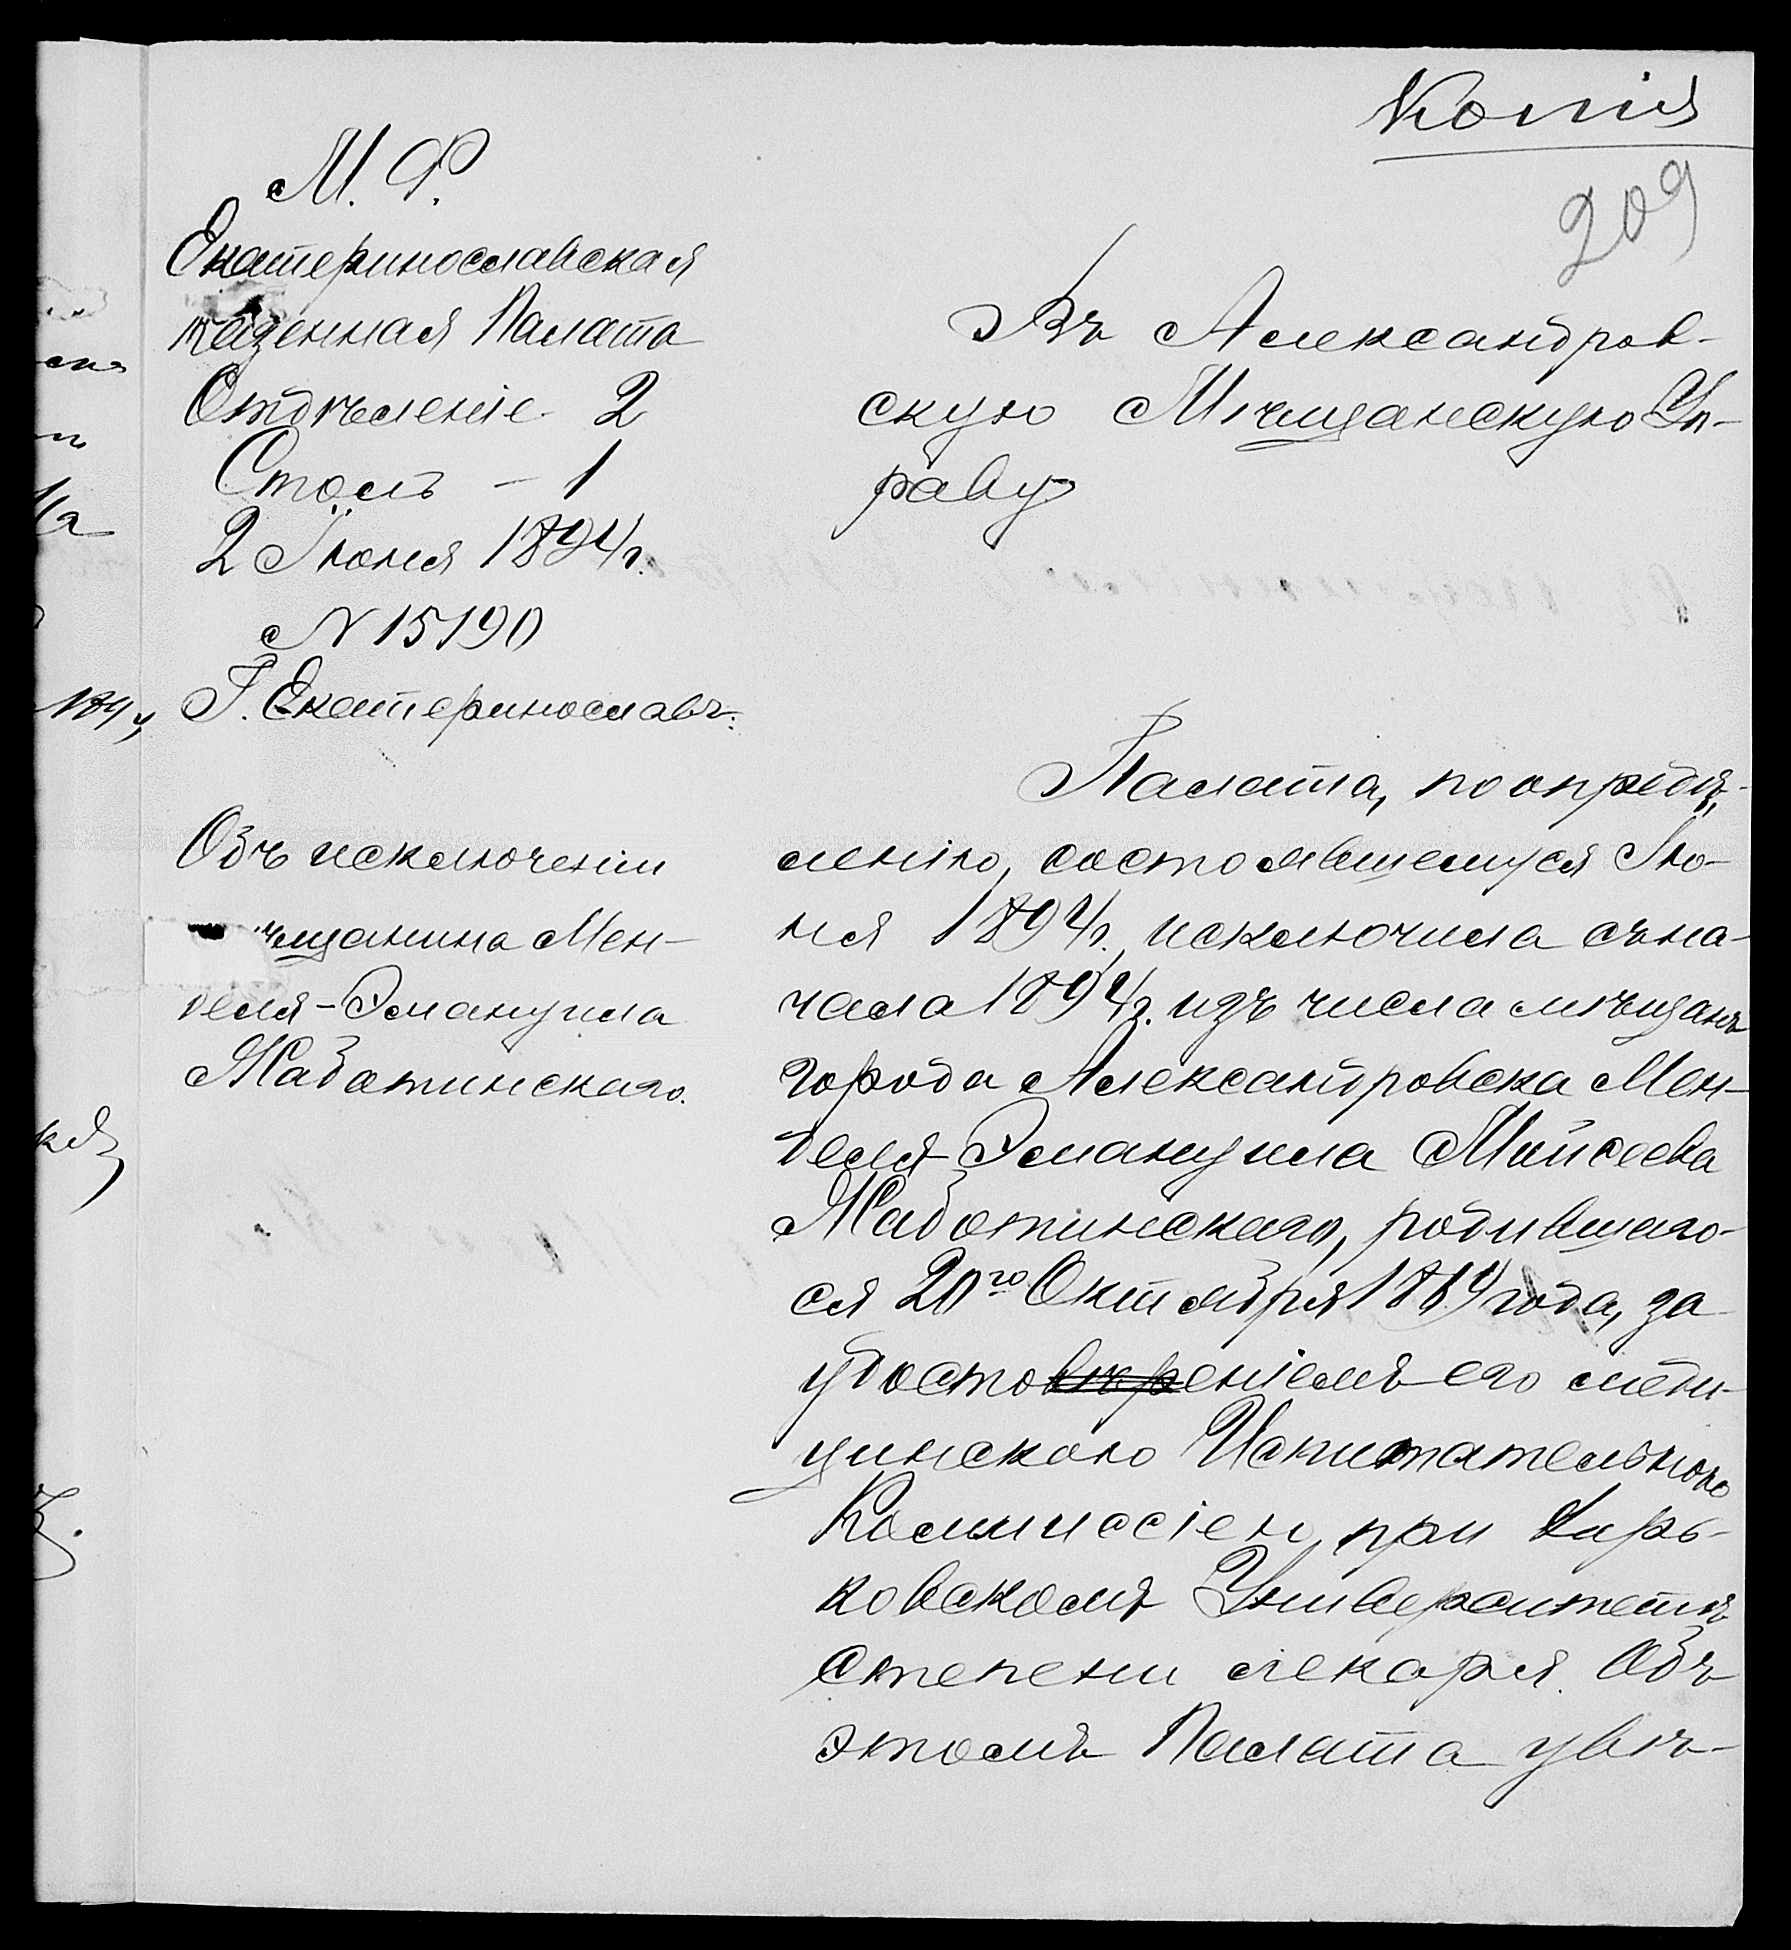 Копія
209
М. Ф.
Екатеринославская
казенная Палата
Отдѣленіе 2
Столъ – 1
2 Іюня 1894 г.
N 15190
Г. Екатеринославъ.
Объ исключеніи
ѣщанина Мен-
деля-Эмануила
Жаботинскаго.
Въ Александров-
скую Мѣщанскую Уп-
раву
Палата, по опредѣ-
ленію, состоявшемуся Ію-
ня 1894 г., исключила съ на-
чала 1894 г. изъ числа мѣщанъ
города Александровска Мен-
деля-Эмануила Мойсеева
Жаботинскаго, родившаго-
ся 20го Октября года, за
удостовѣреніемъ его меди-
цинскою Испытательною
Коммиссіею при Харь-
ковскомъ Университетѣ
степени лекаря. Объ
этомъ Палата увѣ-